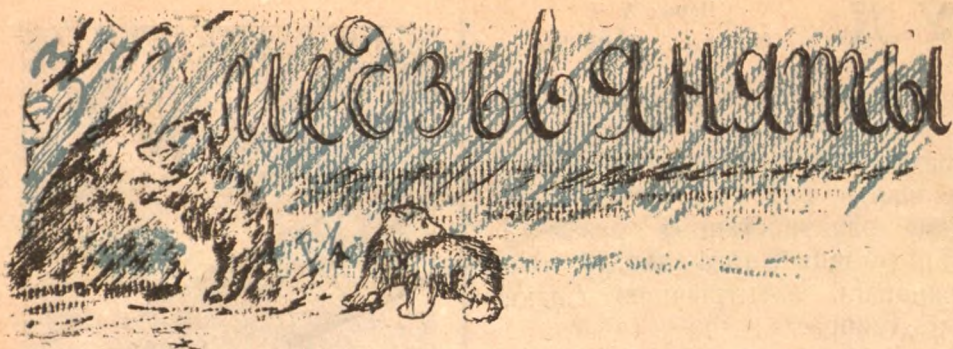 медзьвяняты